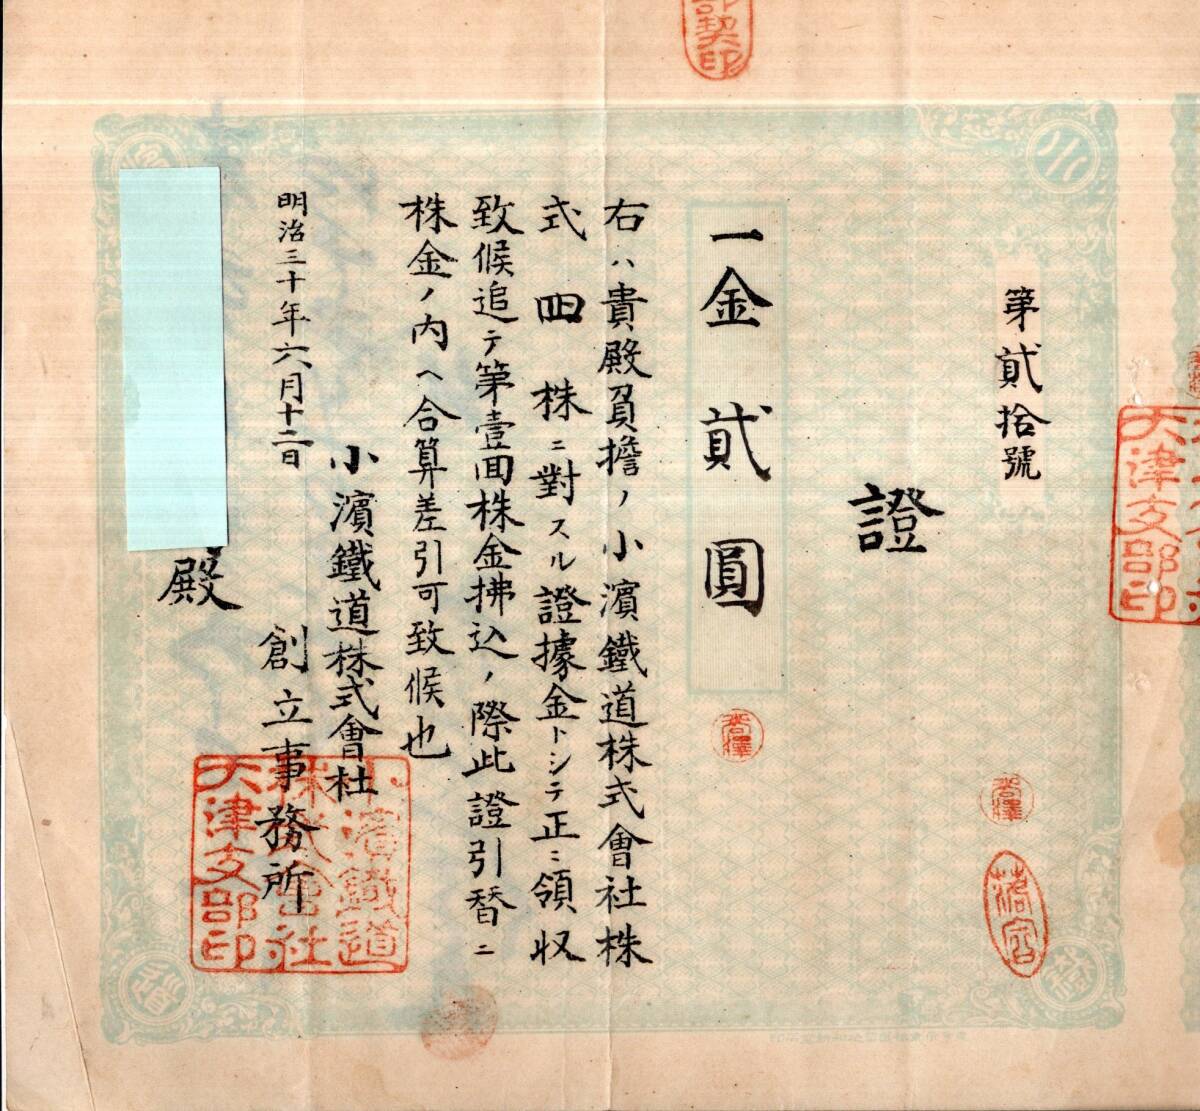 第貳拾號
證
一金貳圓
右ハ貴殿負擔ノ小濱鐵道株式會社株
式四株ニ對スル證據金トシテ正ニ領収
致候追テ第壹回株金拂込ノ際此證引替ニ
株金ノ内ヘ合算差引可致候也
小濱鐵道株式會社
創立事務所
明治三十年六月十二日
殿
小濱鐵道
株式會社
大津支部印
大津支部印
契印
小
濱
鐵
道